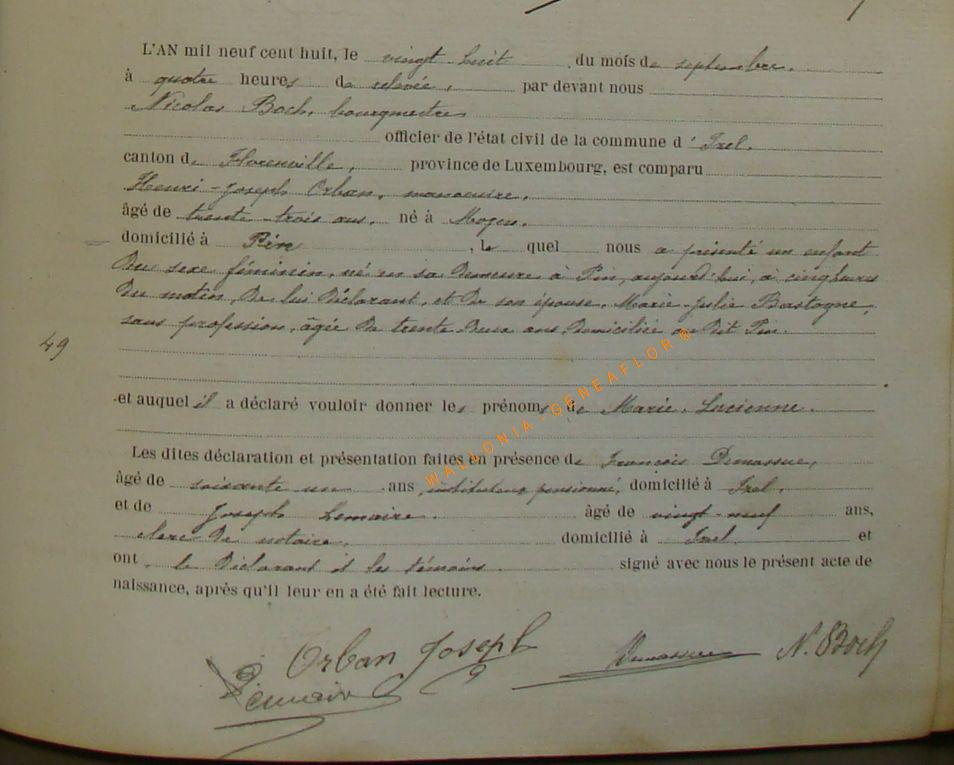 L'AN mil neuf cent huit, le vingt huit du mois de septembre.
à quatre heures de relevée, par devant nous
Nicolas Boch, bourgmestre
officier de l'état civil de la commune d'Izel,
canton de Florenville, province de Luxembourg, est comparu
Henri-Joseph Orban, manoeuvre,
âgé de trente-trois ans, né à Moyen,
domicilié à Pin, lequel nous a présenté un enfant
du sexe féminin, né en sa demeure à Pin, aujourd'hui, à cinq heures
du matin, de lui déclarant, et de son épouse, Marie-Julie Bastogne,
sans profession, âgée de trente deux ans domiciliée au dit Pin.
49
et auquel il a déclaré vouloir donner les prénoms de Marie-Lucienne.
Les dites déclaration et présentation faites en présence de François Demassue,
âgé de soixante un ans, instituteur pensionné, domicilié à Izel,
et de Joseph Lemaire. âgé de vingt-neuf ans,
clerc de notaire, domicilié à Izel. et
ont, le déclarant et les témoins signé avec nous le présent acte de
naissance, après qu'il leur en a été fait lecture.
Orban Joseph Demassue N. Boch
WALLONIA-GENEAFLOR®